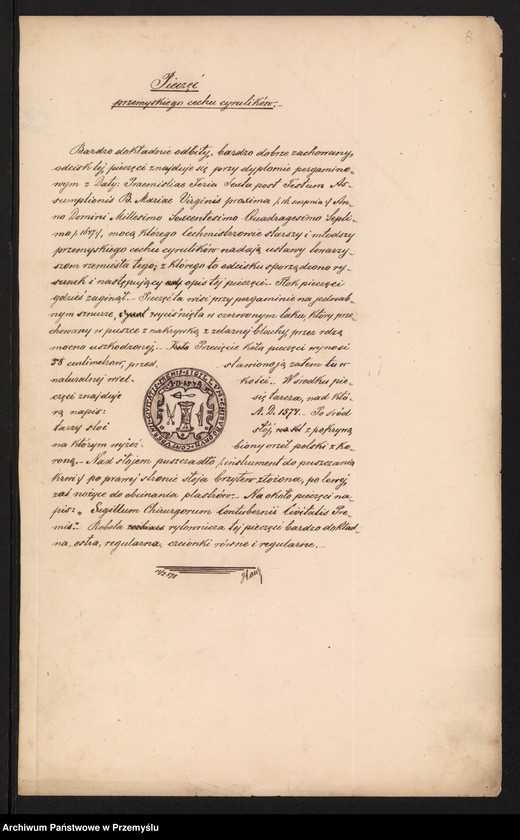 8
Pieczęć
przemyskiego cechu cyrulików.
Bardzo dokładnie odbity, bardzo dobrze zachowany,
odcisk tej pieczęci znajduje się przy dyplomie pergamino-
wym z Daty: Praemislias Feria Sexta post Festum As-
sumptionis B. Mariae Virginis proxima /: 16 sierpnia :/ An-
no Domini Millesimo Sexcentesimo Quadragesimo Septi-
mo, mocą którego Cechmistrzowie starszy i młodszy
przemyskiego cechu cyrulików nadają ustawy towarzy-
szom rzemiosła tego; z którego to odcisku sporządzono ry-
sunek i następujący opis tej pieczęci. Tłok pieczęci
gdzieś zaginął. Pieczęć ta wisi przy pergaminie na jedwab-
nym sznurze, wyciśnięta w czerwonym laku, który prze-
chowany w puszce z nakrywką z żelaznej blachy, przez rdzę
mocno uszkodzonej. Przecięcie koła pieczęci wynosi
38 centimetrów, przed stawioną ją zatem tu w
naturalnej wiel kości. W środku pie-
częci znajduje się tarcza, nad któ-
rą napis: A. D. 1571. Po śród
tarzy stoi stój, z pokrywą
na którym wyżeź biony orzeł polski z ko-
roną. Nad słojem puszczadło /: instrument do puszczania
krwi :/ po prawej stronie słoja brzytew złożona, po lewej
zaś nożyce do obcinania plastrów. Na około pieczęci na-
pis: „Sigillum Chirurgorum Contubernii Civitatis Pre-
mis". Robota rytownicza tej pieczęci bardzo dokład-
na, ostra, regularna, czcionki równe i regularne.
Archiwum Państwowe w Przemyślu